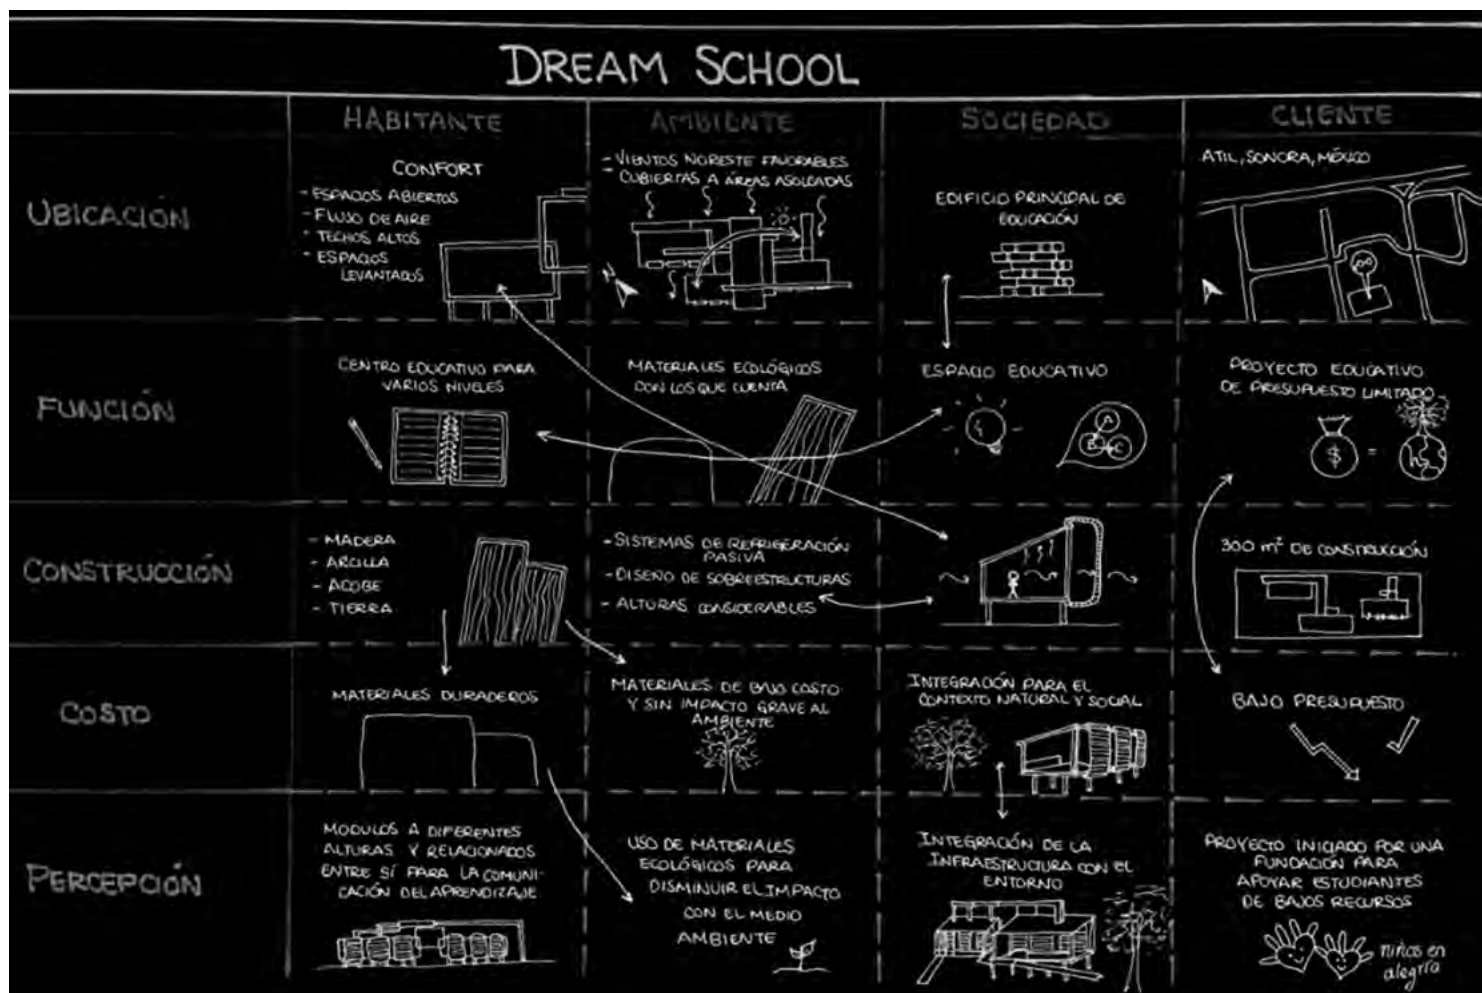 DREAM SCHOOL
HABITANTE
AMBIENTE
SOCIEDAD
CLIENTE
UBICACIÓN
CONFORT
- ESPACIOS ABIERTOS
- FLUJO DE AIRE
- TECHOS ALTOS
- ESPACIOS
LEVANTADOS
- VIENTOS NORESTE FAVORABLES
- CUBIERTAS A ÁREAS ASOLEADAS
N
EDIFICIO PRINCIPAL DE
EDUCACIÓN
ATIL, SONORA, MÉXICO
FUNCIÓN
CENTRO EDUCATIVO PARA
VARIOS NIVELES
MATERIALES ECOLÓGICOS
CON LOS QUE CUENTA
ESPACIO EDUCATIVO
A
B
C
PROYECTO EDUCATIVO
DE PRESUPUESTO LIMITADO
$ =
CONSTRUCCIÓN
- MADERA
- ARCILLA
- ADOBE
- TIERRA
- SISTEMAS DE REFRIGERACIÓN
PASIVA
- DISEÑO DE SOBREESTRUCTURAS
- ALTURAS CONSIDERABLES
300 m² DE CONSTRUCCIÓN
COSTO
MATERIALES DURADEROS
MATERIALES DE BAJO COSTO
Y SIN IMPACTO GRAVE AL
AMBIENTE
INTEGRACIÓN PARA EL
CONTEXTO NATURAL Y SOCIAL
BAJO PRESUPUESTO
PERCEPCIÓN
MODULOS A DIFERENTES
ALTURAS Y RELACIONADOS
ENTRE SÍ PARA LA COMUNI-
CACIÓN DEL APRENDIZAJE
USO DE MATERIALES
ECOLÓGICOS PARA
DISMINUIR EL IMPACTO
CON EL MEDIO
AMBIENTE
INTEGRACIÓN DE LA
INFRAESTRUCTURA CON EL
ENTORNO
PROYECTO INICIADO POR UNA
FUNDACIÓN PARA
APOYAR ESTUDIANTES
DE BAJOS RECURSOS
niños en
alegría